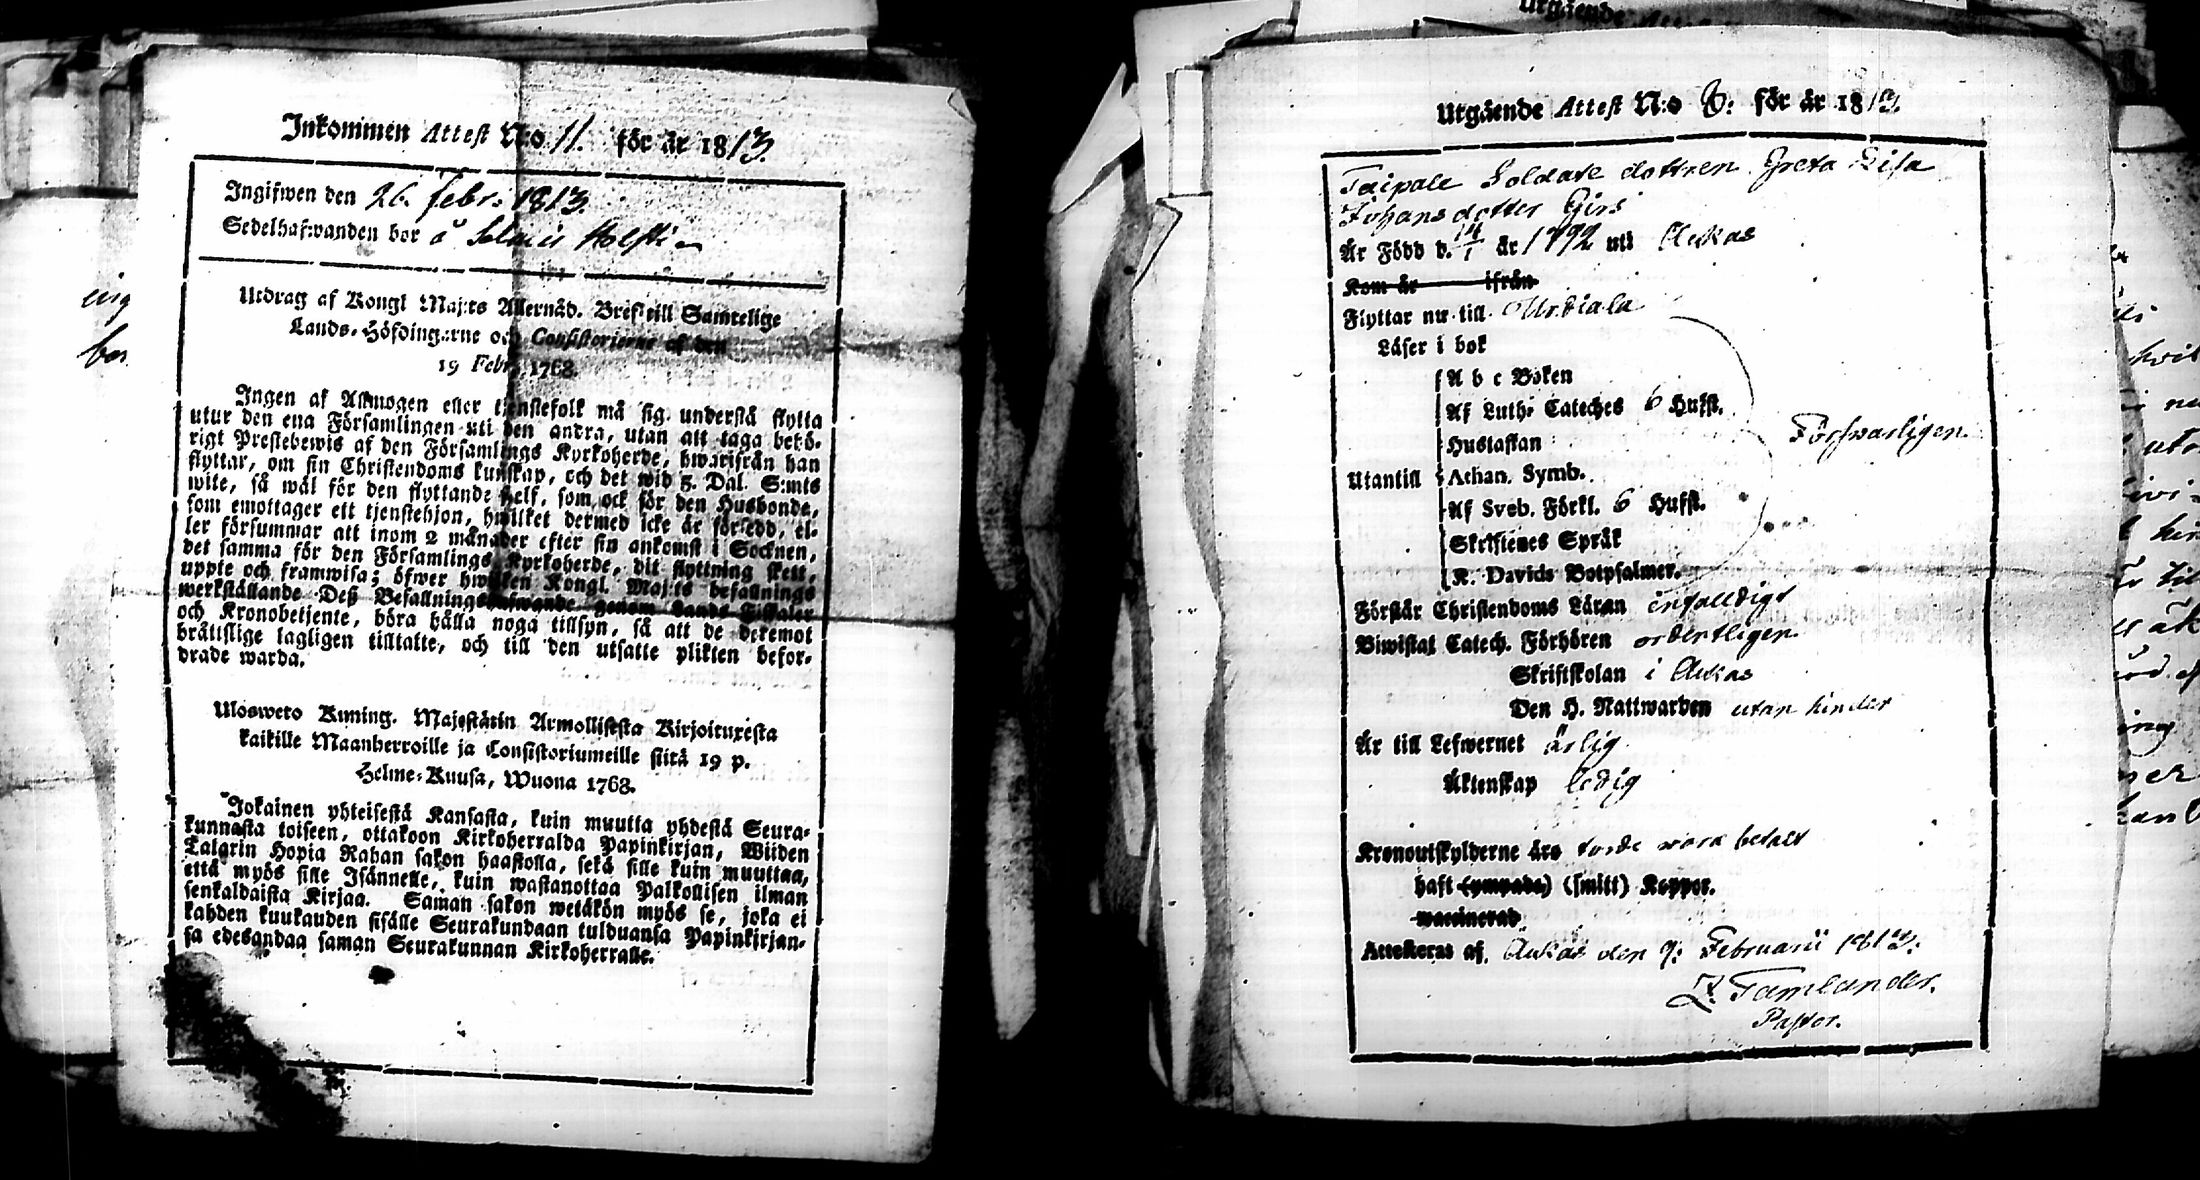 Inkommen Attest N:o 11. för år 1813.
Ingifwen den 26. febr. 1813.
Sedelhafwanden bor å
Utdrag af Kongl Maj:ts Allernåd. Bref till Samtelige
Lands-Höfdingarne och Consistorierne af den
19 Febr. 1768.
Ingen af Allmogen eller tjenstefolk må sig understå flytta
utur den ena Församlingen uti den andra, utan att taga behö-
rigt Prestebewis af den Församlings Kyrkoherde, hwarifrån han
flyttar, om sin Christendoms kunskap, och det wid 5. Dal. S:mts
wite, så wäl för den flyttande self, som ock för den Husbonde,
som emottager ett tjenstehjon, hwilket dermed icke är försedd, el-
ler försummar att inom 2 månader efter sin ankomst i Socknen,
det samma för den Församlings Kyrkoherde, dit flyttning skett,
uppte och framwisa; öfwer hwilken Kongl. Maj:ts befallnings
werkställande Deß Befallningshafwande genom Lands-Fiskaler
och Kronobetjente, böra hålla noga tillsyn, så att de deremot
bråttslige lagligen tilltalte, och till den utsatte plikten befor-
drade warda.
Ulosweto Kuning. Majestätin Armollisesta Kirjoituxesta
kaikille Maanherroille ja Consistoriumeille siitä 19 p.
Helme-Kuusa, Wuona 1768.
Jokainen yhteisestä Kansasta, kuin muutta yhdestä Seura-
kunnasta toiseen, ottakoon Kirkoherralda Papinkirjan, Wiiden
Talarin Hopia Rahan sakon haastolla, sekä sille kuin muuttaa,
että myös sille Isännelle, kuin wastanottaa Palkollisen ilman
senkaldaista Kirjaa. Saman sakon wetäkön myös se, joka ei
kahden kuukauden sisälle Seurakundaan tulduansa Papinkirjan-
sa edesandaa saman Seurakunnan Kirkoherralle.
Utgående Attest N:o 8: för år 1813.
Taipale Soldate dottren Greta Lisa
Johansdotter Girs
Är Född d. 14/1 år 1792 uti Ackas
Kom år ifrån
Flyttar nu till Urdiala
Läser i bok
A b c Boken
Af Luth. Cateches 6 Hufst.
Hustaflan
Försvarligen.
Utantill Athan. Symb.
Af Sveb. Förkl. 6 Hufst.
Skriftenes Språk
K. Davids Botpsalmer.
Förstår Christendoms Läran enfalldigt
Biwistat Catech. Förhören ordentligen
Skriftskolan i Ackas
Den H. Nattwarden utan hinder
Är till Lefwernet ärlig
Äktenskap ledig
Kronoutskylderne äro torde vara betalt
haft (ympade) (smitt) Koppor.
waccinerad
Attesteras af, Ackas den 9: Februarii 1813:
Z. Tamlander.
Pastor.